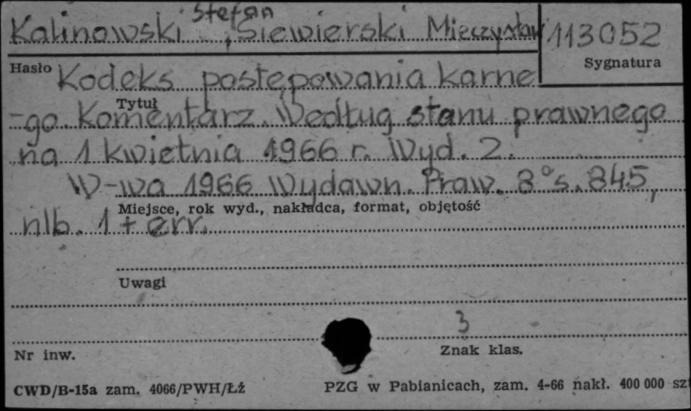 Kalinowski Stefan, Siewierski Mieczysław
113052
Hasło
Sygnatura
Kodeks postępowania karne
Tytuł
-go. Komentarz. Według stanu prawnego
na 1 kwietnia 1966 r. Wyd. 2.
W-wa 1966 Wydawn. Praw. 8° s. 845,
Miejsce, rok wyd., nakładca, format, objętość
nlb. 1 + err.
Uwagi
3
Nr inw.
Znak klas.
CWD/B-15a zam. 4066/PWH/Łź
PZG w Pabianicach, zam. 4-66 nakł. 400 000 szt